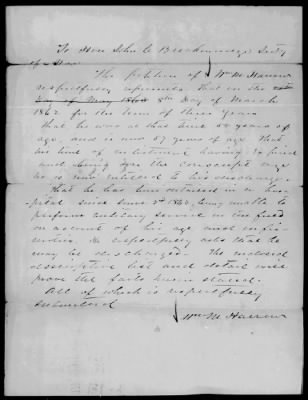 To Hon John C Breckinridge Secty
of War
The petition of Wm M Harrow
respectfully represents that on the
Day of May 8th Day of March
1862 for the term of three years
that he was at that time 54 years of
age, and is now 57 years of age that
his time of enlistment having expired
and being over the conscript age
he is now entitled to his discharge.
That he has been in a hos-
pital since June being unable to
perform military service in the field
on account of his age and in-fir-
mities. He respectfully asks that he
may be discharged. The enclosed
descriptive list and detail will
prove the facts herein stated.
All of which is respectfully
submitted
Wm M Harrow